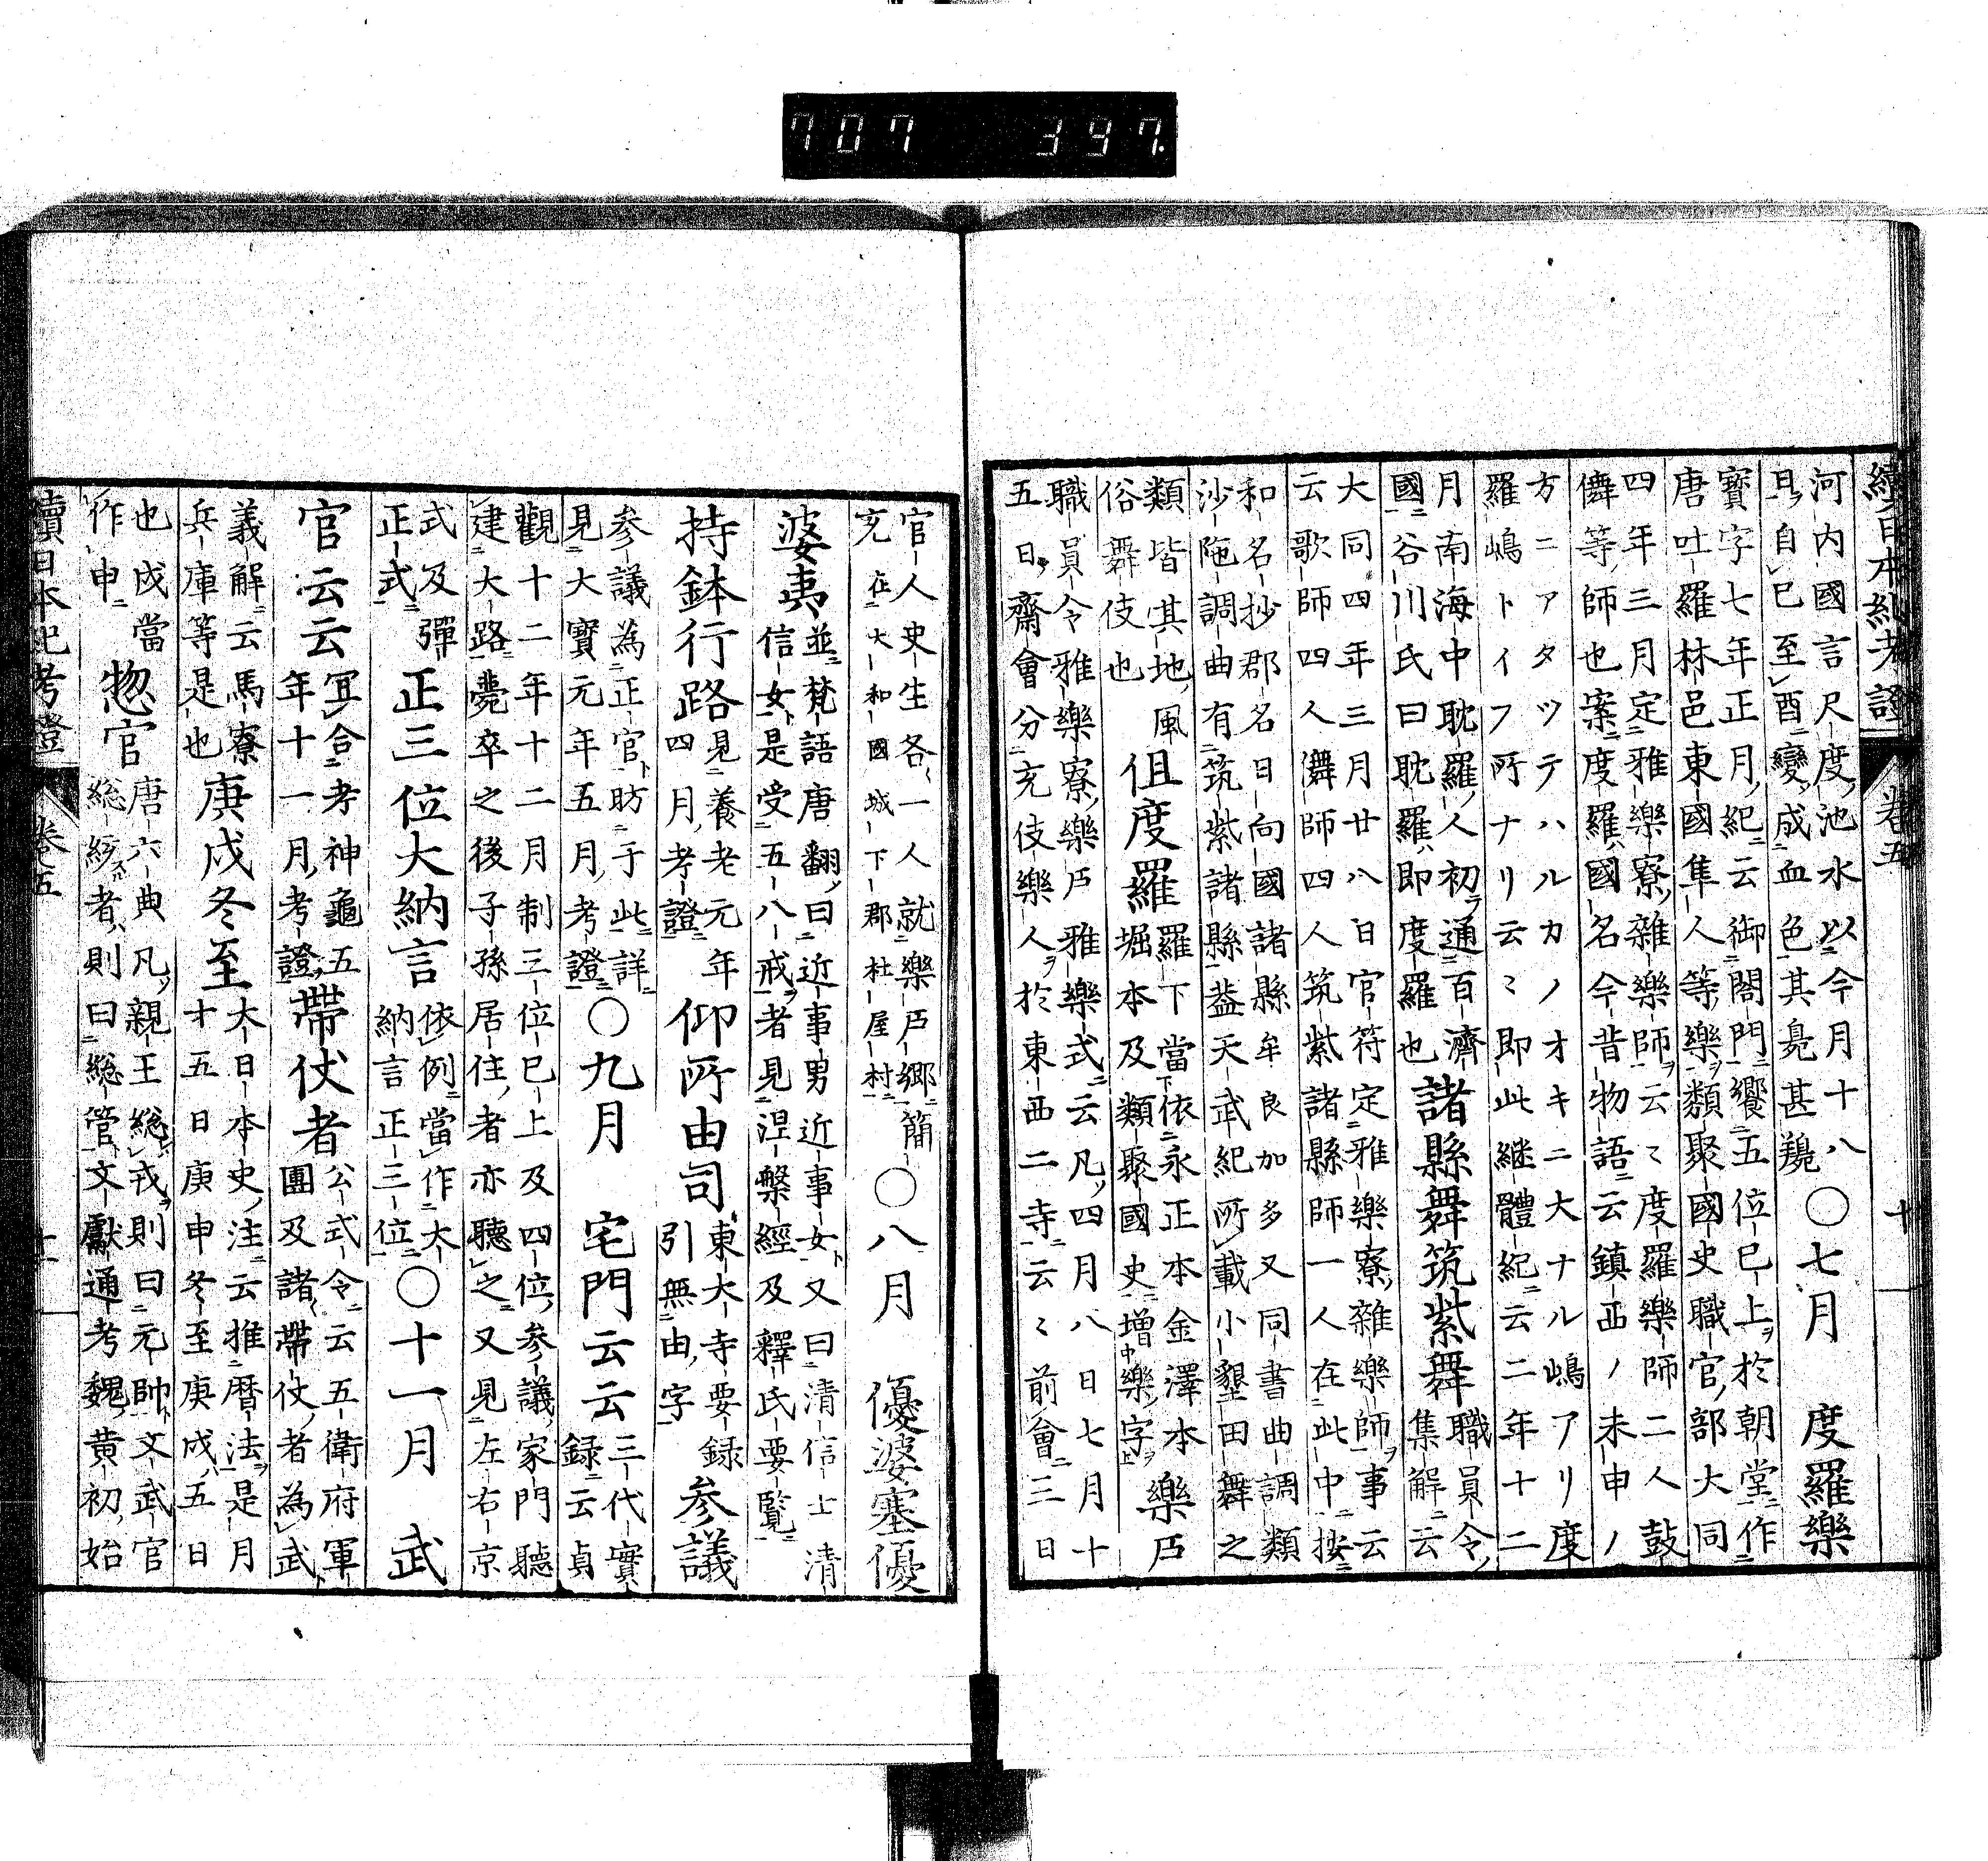 707 397.
續日本紀考證 卷五 十
河内國言尺度池水以今月十八
日自巳至酉變成血色其鳧甚羶
○七月 度羅樂
寶字七年正月紀云御閤門饗五位已上於朝堂作
唐吐羅林邑東國隼人等樂類聚國史職官部大同
四年三月定雅樂寮雜樂師云〻度羅樂師二人鼓
儛等師也案度羅國名今昔物語云鎮西ノ未申ノ
方ニアタツテハルカノオキニ大ナル嶋アリ度
羅嶋トイフ所ナリ云〻即此継體紀云二年十二
月南海中耽羅人初通百濟
國谷川氏曰耽羅即度羅也
諸縣舞筑紫舞
職員令
集解云
大同四年三月廿八日官符定雅樂寮雜樂師事云
云歌師四人儛師四人筑紫諸縣師一人在此中按
和名抄郡名日向國諸縣牟良加多又同書曲調類
沙陁調曲有筑紫諸縣蓋天武紀所載小墾田舞之
類皆其地風
俗舞伎也
伹度羅
羅下當依永正本金澤本
堀本及類聚國史增樂字
樂戸
職員令雅樂寮樂戸雅樂式云凡四月八日七月十
五日齋會分充伎樂人於東西二寺云〻前會三日
官人史生各一人就樂戸郷簡
充在大和國城下郡杜屋村
○八月 優婆塞優
婆夷
並梵語唐翻曰近事男近事女又曰清信士清
信女是受五八戒者見涅槃經及釋氏要覧
持鉢行路
見養老元年
四月考證
仰所由司
東大寺要録
引無由字
參議
参議為正官昉于此詳
見大寶元年五月考證
○九月 宅門云云
三代實
録云貞
觀十二年十二月制三位已上及四位参議家門聽
建大路薨卒之後子孫居住者亦聽之又見左右京
式及彈
正式
正三位大納言
依例當作大
納言正三位
○十一月 武
官云云
冝合考神龜五
年十一月考證
帶仗者
公式令云五衛府軍
團及諸帶仗者為武
義解云馬寮
兵庫等是也
庚戌冬至
大日本史注云推暦法是月
十五日庚申冬至庚戌五日
也戌當
作申
惣官
唐六典凡親王総戎則曰元帥文武官
総統者則曰緫管文獻通考魏黄初始
續日本紀考證 卷五